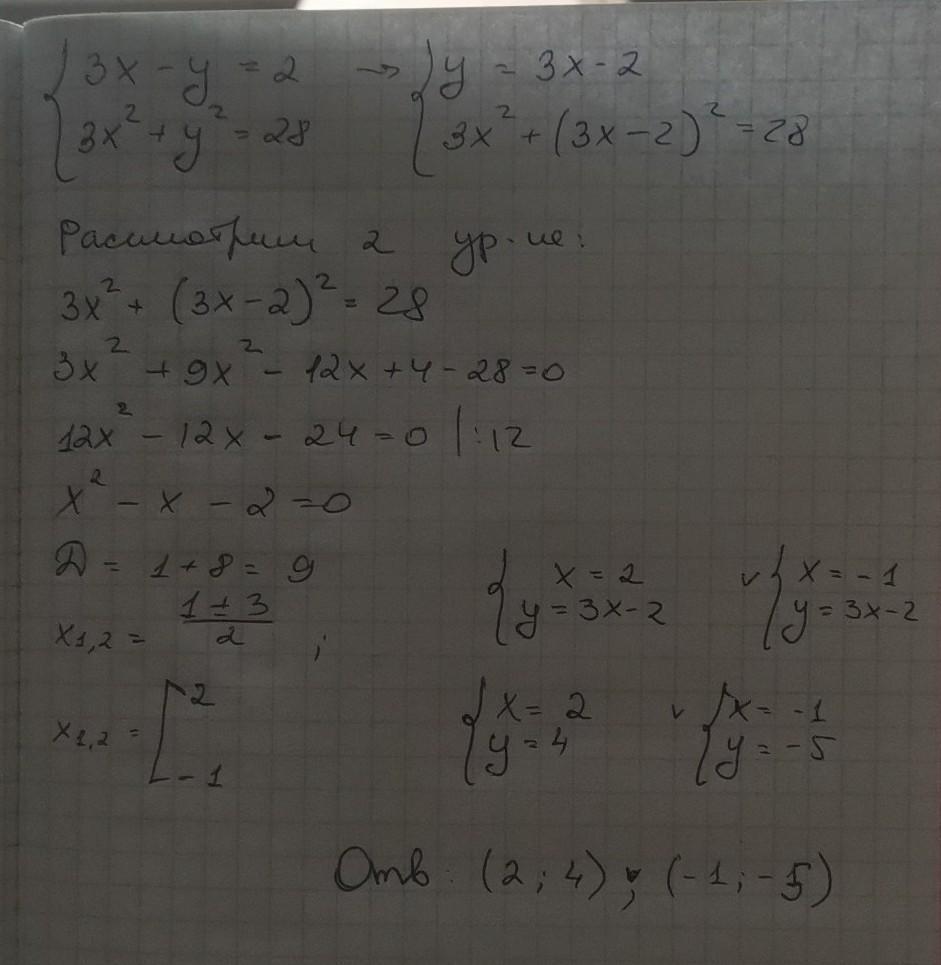 { 3x - y = 2 → { y = 3x - 2
3x² + y² = 28 3x² + (3x - 2)² = 28
Рассмотрим 2 ур-ие:
3x² + (3x - 2)² = 28
3x² + 9x² - 12x + 4 - 28 = 0
12x² - 12x - 24 = 0 | :12
x² - x - 2 = 0
Д = 1 + 8 = 9
x1,2 = (1 ± 3)/2 ;
x1,2 = [ 2
-1
{ x = 2 v { x = -1
y = 3x - 2 y = 3x - 2
{ x = 2 v { x = -1
y = 4 y = -5
Отв: (2; 4); (-1; -5)